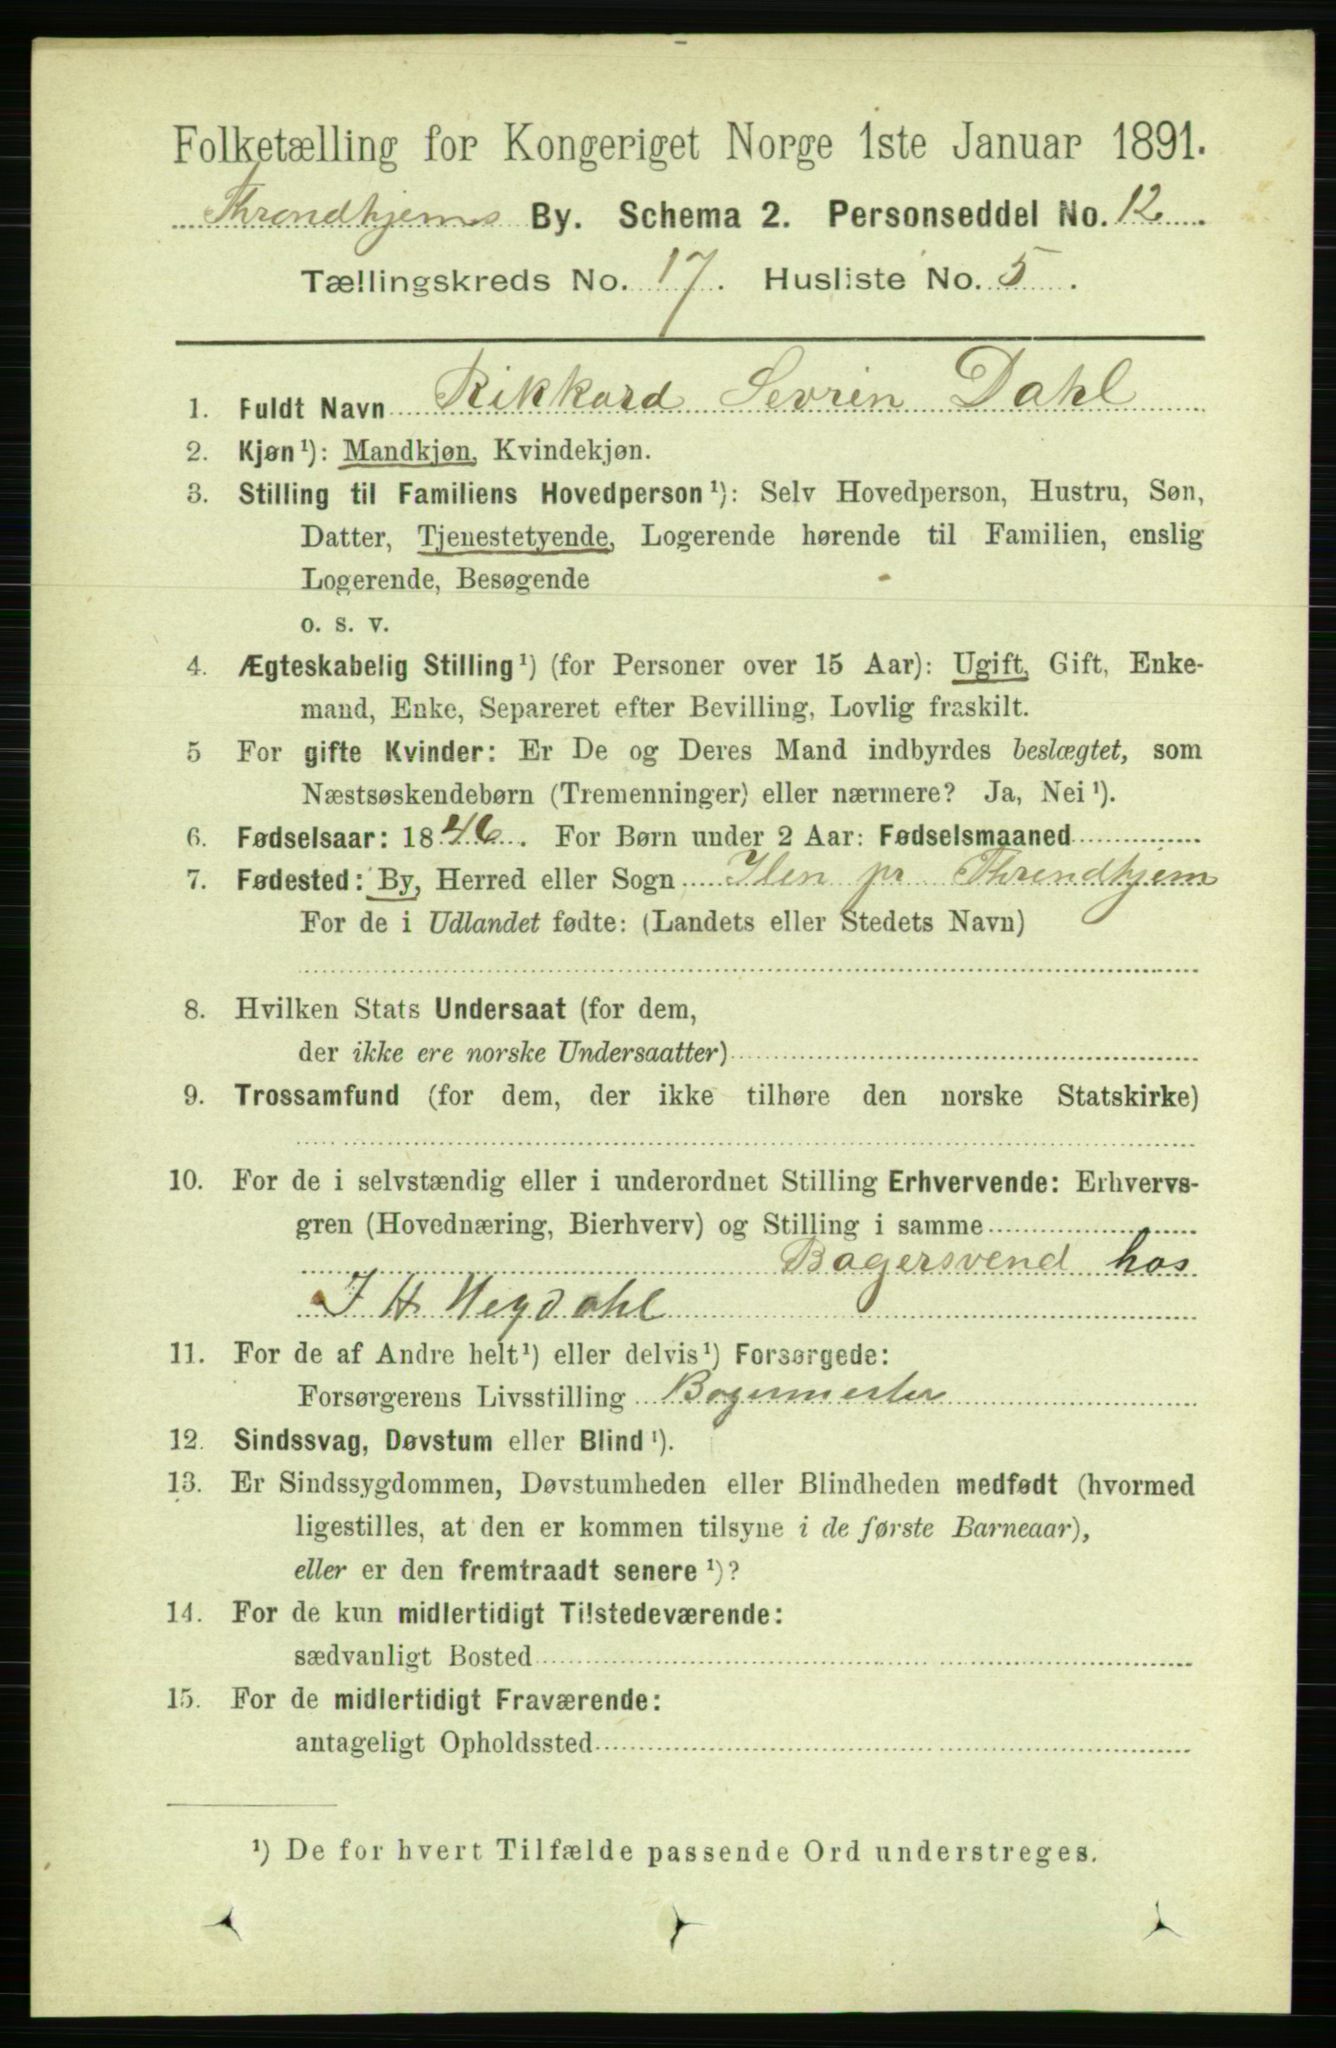 Folketælling for Kongeriget Norge 1ste Januar 1891.
Throndhjems By. Schema 2. Personseddel No. 12
Tællingskreds No. 17. Husliste No. 5.
1. Fuldt Navn Rikkard Sevrin Dahl
2. Kjøn¹): Mandkjøn, Kvindekjøn.
3. Stilling til Familiens Hovedperson¹): Selv Hovedperson, Hustru, Søn,
Datter, Tjenestetyende, Logerende hørende til Familien, enslig
Logerende, Besøgende
o. s. v.
4. Ægteskabelig Stilling¹) (for Personer over 15 Aar): Ugift, Gift, Enke-
mand, Enke, Separeret efter Bevilling, Lovlig fraskilt.
5 For gifte Kvinder: Er De og Deres Mand indbyrdes beslægtet, som
Næstsøskendebørn (Tremenninger) eller nærmere? Ja, Nei¹).
6. Fødselsaar: 1846. For Børn under 2 Aar: Fødselsmaaned
7. Fødested: By, Herred eller Sogn Ilen pr Throndhjem
For de i Udlandet fødte: (Landets eller Stedets Navn)
8. Hvilken Stats Undersaat (for dem,
der ikke ere norske Undersaatter)
9. Trossamfund (for dem, der ikke tilhøre den norske Statskirke)
10. For de i selvstændig eller i underordnet Stilling Erhvervende: Erhvervs-
gren (Hovednæring, Bierhverv) og Stilling i samme
Bagersvend hos
J H Hegdahl
11. For de af Andre helt¹) eller delvis¹) Forsørgede:
Forsørgerens Livsstilling Bagermester
12. Sindssvag, Døvstum eller Blind¹).
13. Er Sindssygdommen, Døvstumheden eller Blindheden medfødt (hvormed
ligestilles, at den er kommen tilsyne i de første Barneaar),
eller er den fremtraadt senere¹)?
14. For de kun midlertidigt Tilstedeværende:
sædvanligt Bosted
15. For de midlertidigt Fraværende:
antageligt Opholdssted
¹) De for hvert Tilfælde passende Ord understreges.